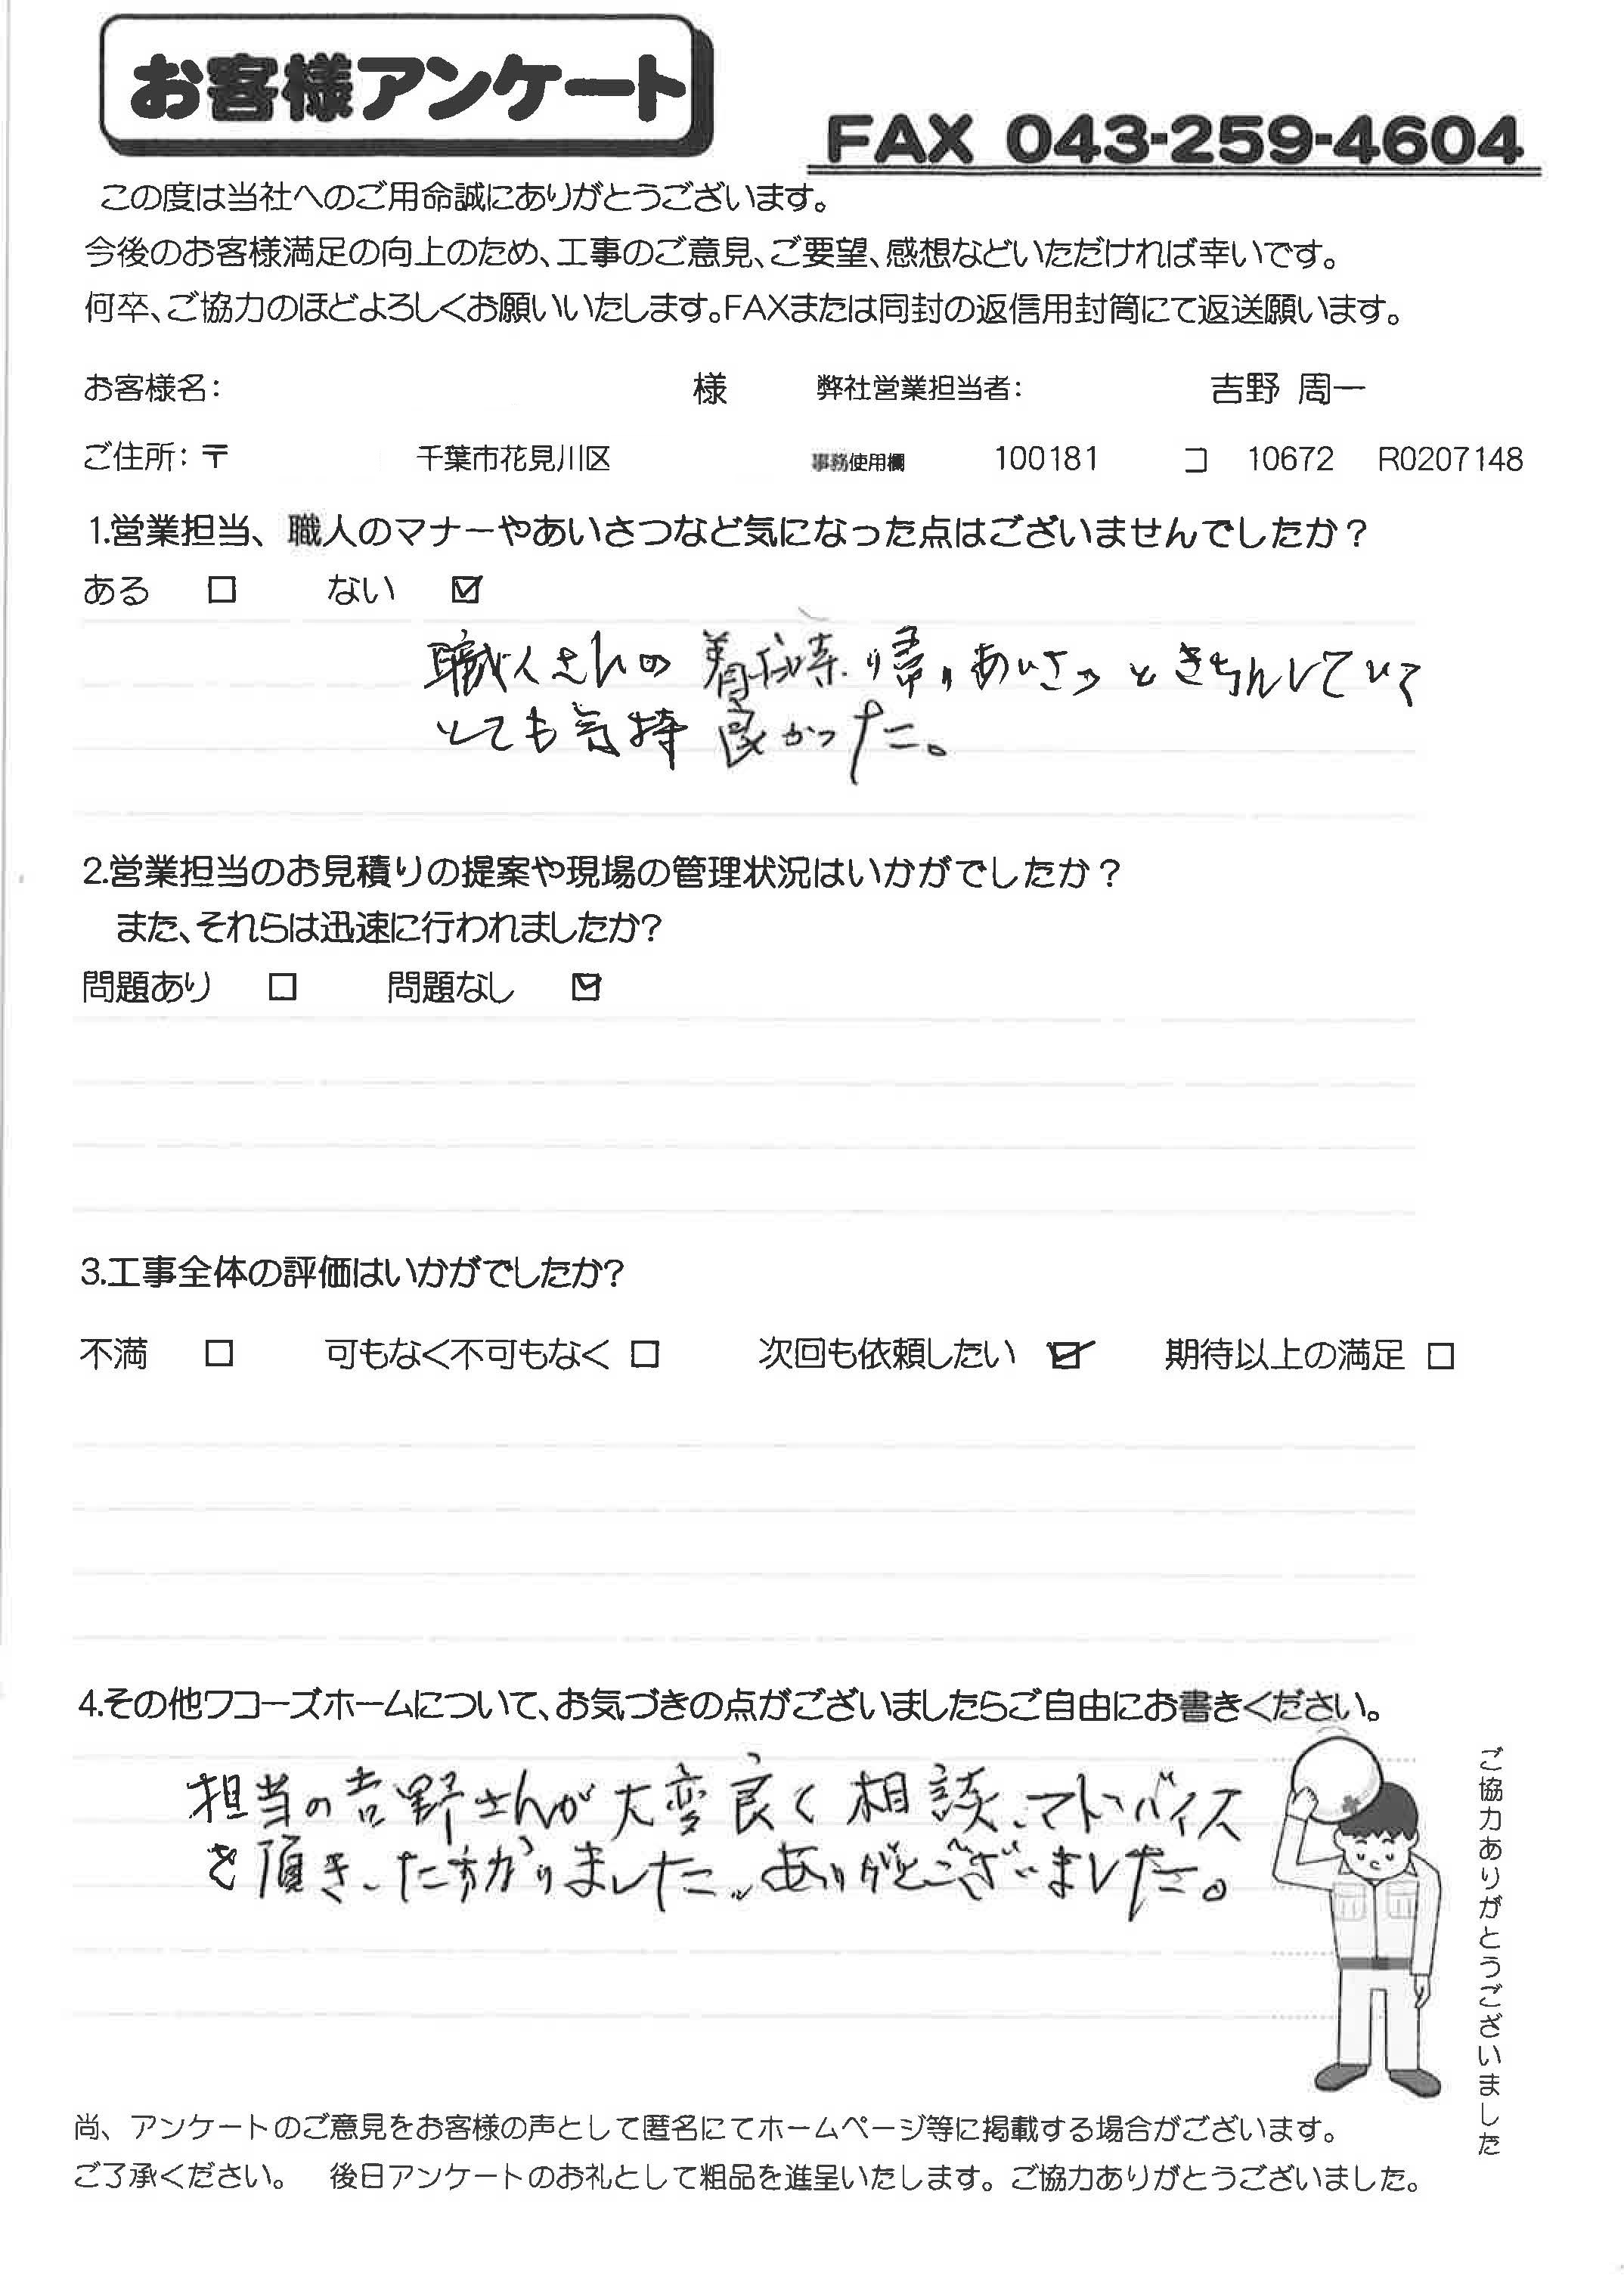 お客様アンケート
FAX 043-259-4604
この度は当社へのご用命誠にありがとうございます。
今後のお客様満足の向上のため、工事のご意見、ご要望、感想などいただければ幸いです。
何卒、ご協力のほどよろしくお願いいたします。FAXまたは同封の返信用封筒にて返送願います。
お客様名： 様 弊社営業担当者： 吉野 周一
ご住所：〒 千葉市花見川区 事務使用欄 100181 コ 10672 R0207148
1.営業担当、職人のマナーやあいさつなど気になった点はございませんでしたか？
ある □ ない ☑
職人さんの り帰りあいさつときちんしていて
とても気持良かった。
2.営業担当のお見積りの提案や現場の管理状況はいかがでしたか？
また、それらは迅速に行われましたか?
問題あり □ 問題なし ☑
3.工事全体の評価はいかがでしたか?
不満 □ 可もなく不可もなく □ 次回も依頼したい ☑ 期待以上の満足 □
4.その他ワコーズホームについて、お気づきの点がございましたらご自由にお書きください。
担当の吉野さんが大変良く相談、アドバイス
を頂き、たすかりました。ありがとうございました。
ご協力ありがとうございました
尚、アンケートのご意見をお客様の声として匿名にてホームページ等に掲載する場合がございます。
ご了承ください。 後日アンケートのお礼として粗品を進呈いたします。ご協力ありがとうございました。